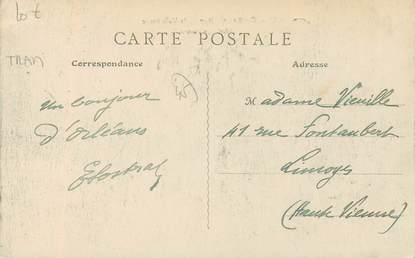 lot
TRAM
CARTE POSTALE
Correspondance
Adresse
un bonjour
d'Orléans
Madame Vieuille
41 rue Fontaubert
Limoges
(Haute Vienne)